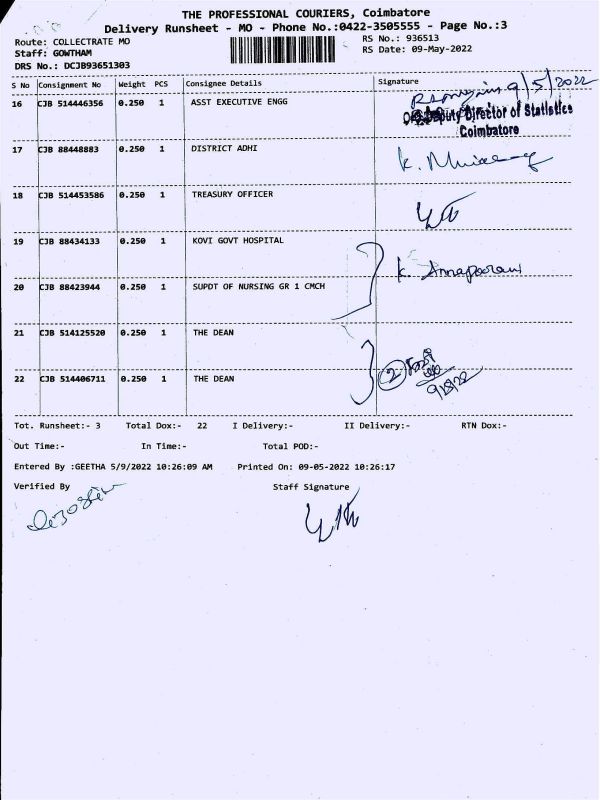 THE PROFESSIONAL COURIERS, Coimbatore
Delivery Runsheet - MO - Phone No.:0422-3505555 - Page No.:3
Route: COLLECTRATE MO
RS No.: 936513
Staff: GOWTHAM
RS Date: 09-May-2022
DRS No.: DCJB93651303
S No Consignment No Weight PCS Consignee Details Signature
16 CJB 514446356 0.250 1 ASST EXECUTIVE ENGG
9/5/2022
Deputy Director of Statistics
Coimbatore
17 CJB 88448883 0.250 1 DISTRICT ADHI
K.
18 CJB 514453586 0.250 1 TREASURY OFFICER
19 CJB 88434133 0.250 1 KOVI GOVT HOSPITAL
K. Annapoorani
20 CJB 88423944 0.250 1 SUPDT OF NURSING GR 1 CMCH
21 CJB 514125520 0.250 1 THE DEAN
2
22 CJB 514406711 0.250 1 THE DEAN
Tot. Runsheet:- 3 Total Dox:- 22 I Delivery:- II Delivery:- RTN Dox:-
Out Time:- In Time:- Total POD:-
Entered By :GEETHA 5/9/2022 10:26:09 AM Printed On: 09-05-2022 10:26:17
Verified By Staff Signature